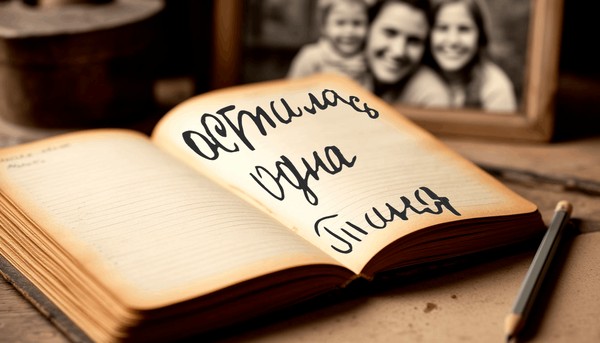 остилась
одна
Тиня